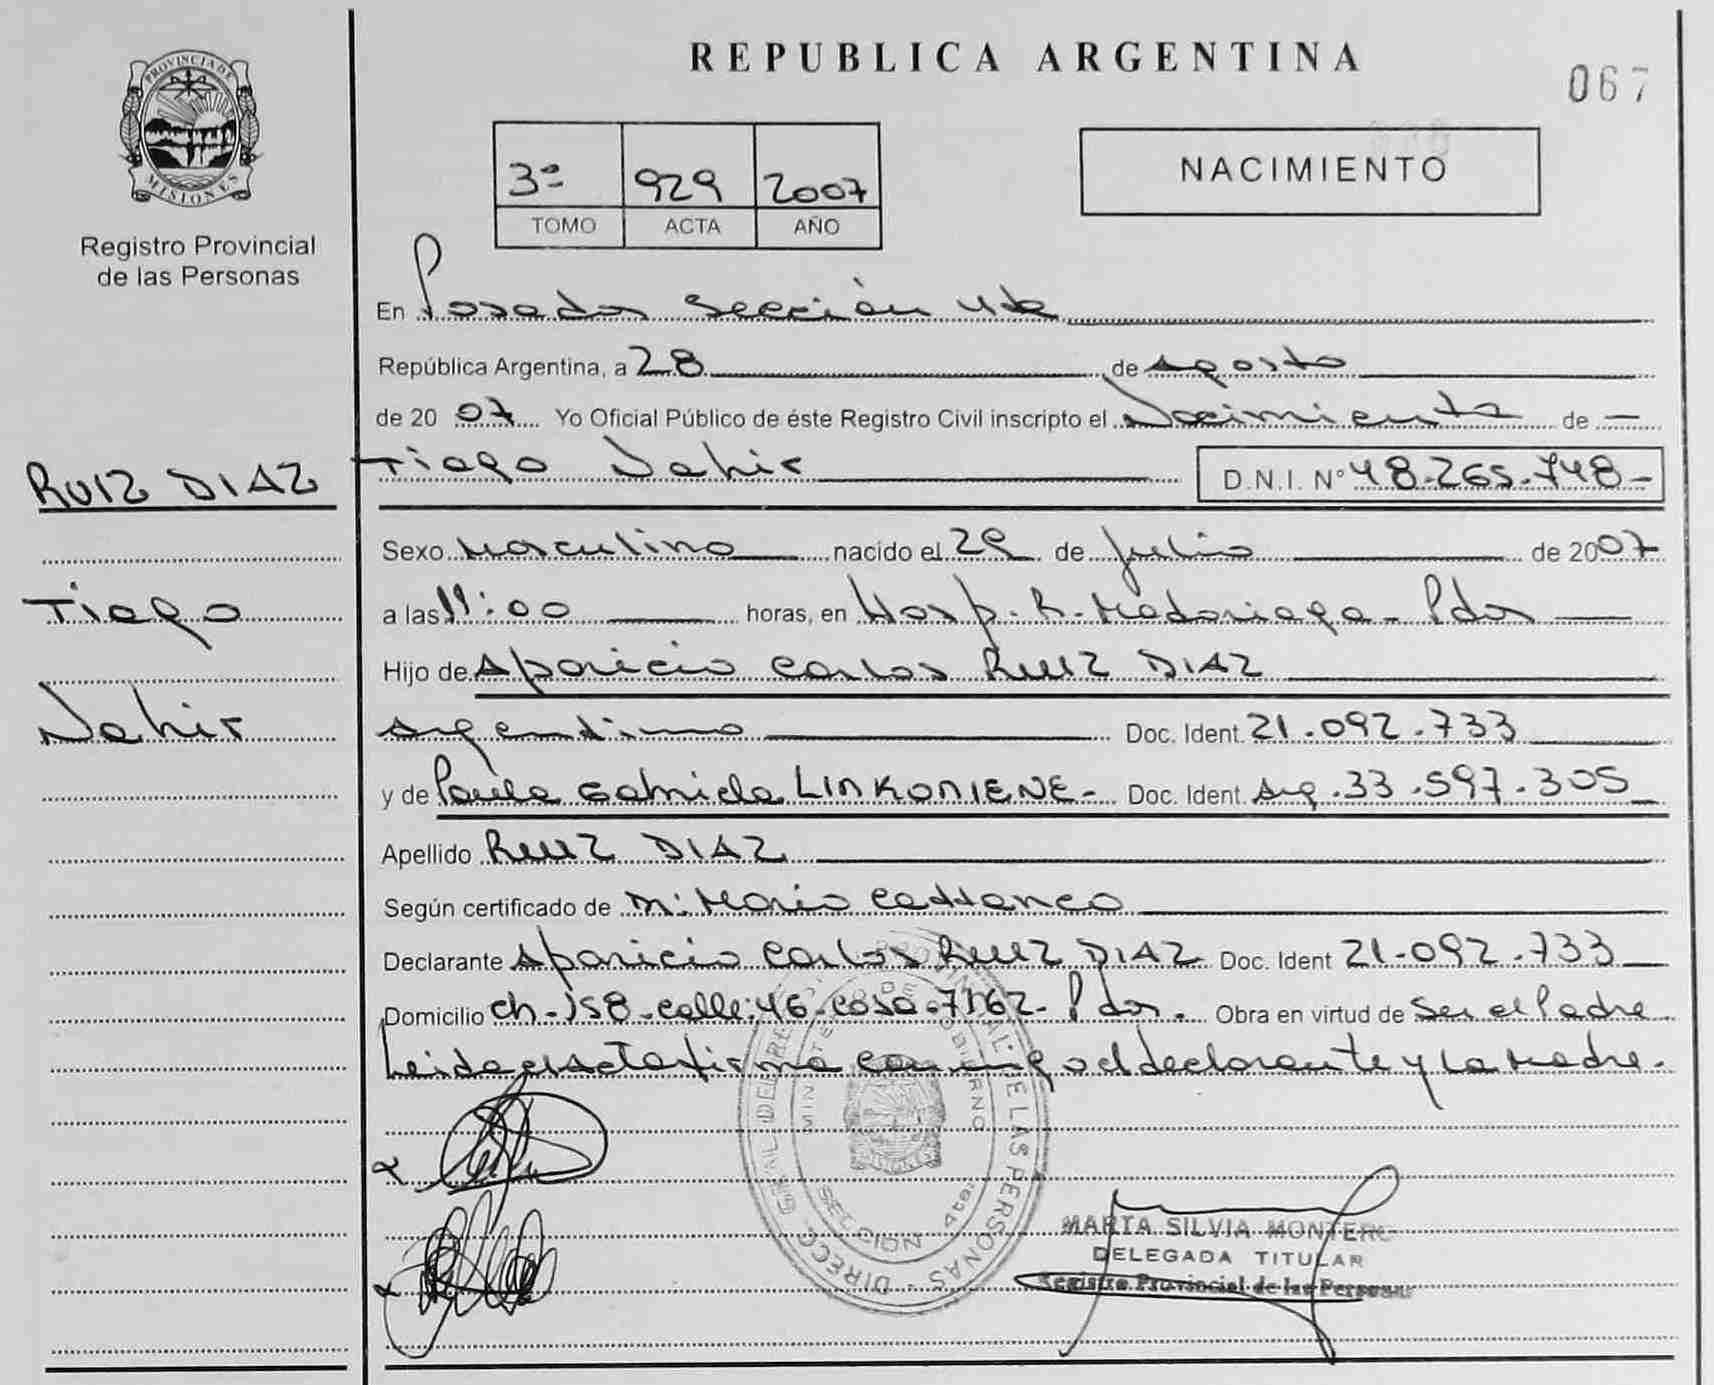 PROVINCIA DE
MISIONES
Registro Provincial
de las Personas
REPUBLICA ARGENTINA
067
3ª 929 2007
TOMO ACTA AÑO
NACIMIENTO
En Posadas Sección 4ta
República Argentina, a 28 de Agosto
de 2007 Yo Oficial Público de éste Registro Civil inscripto el Nacimiento de —
RUIZ DIAZ
Tiago Nahir
D.N.I. Nº 48.265.748-
Sexo Masculino nacido el 29 de Julio de 2007
Tiago
a las 11:00 horas, en Hosp. R. Madariaga - Pdas
Hijo de Aparicio Carlos RUIZ DIAZ
Nahir
Argentino Doc. Ident. 21.092.733
y de Paula Gabriela LINKONIENE- Doc. Ident. Arg. 33.597.305
Apellido RUIZ DIAZ
Según certificado de Mario Cattaneo
Declarante Aparicio Carlos RUIZ DIAZ Doc. Ident 21.092.733
Domicilio Ch-158-calle:46-casa.7162-Pdas. Obra en virtud de Ser el Padre
Leida el acta firma conmigo el declarante y la Madre.
MINISTERIO DE GOBIERNO
SECCION 4ta
MARTA SILVIA MONTERO
DELEGADA TITULAR
Registro Provincial de las Personas